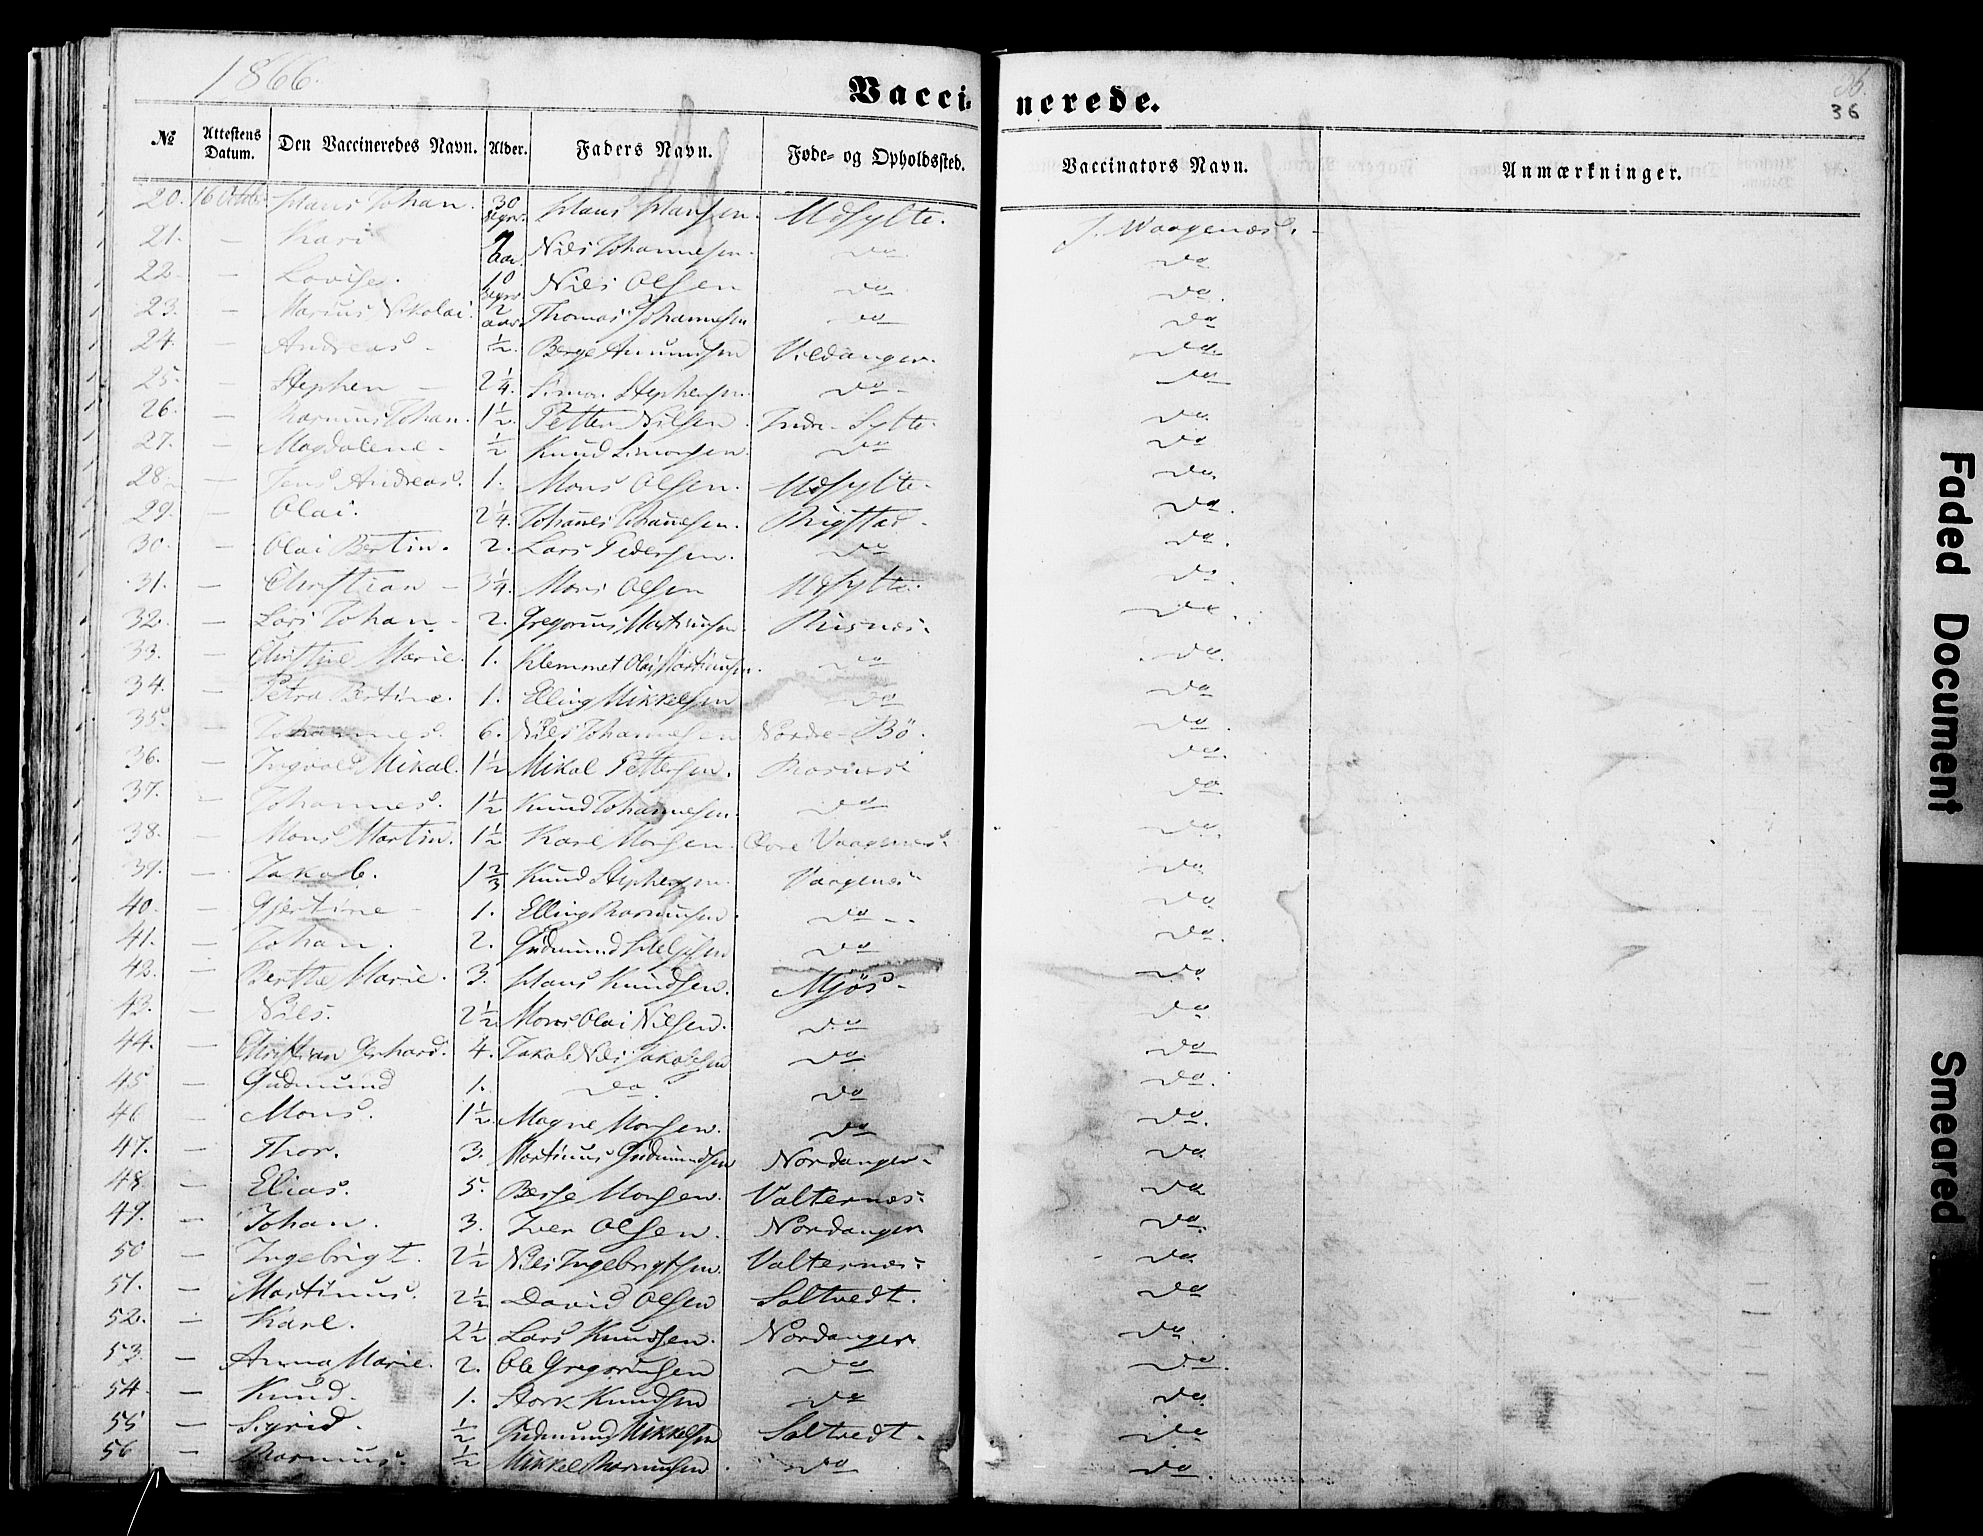 1866.
Vaccinerede.
36.
36
№ Attestens Datum. Den Vaccineredes Navn. Alder. Faders Navn. Føde- og Opholdssted. Vaccinators Navn. Anmærkninger.
20. 16 Octbr. Hans Johan. 30 Hans Hansen. Udsylte. J. Waagenæs.
21. — Kari Aar. Nils Johannesen. do do
22. — Lovise. 10 Nils Olsen do do.
23. — Marius Nikolai. ½ aar. Thomas Johannesen do do
24. — Andreas — ½. Berge Amundsen Vildanger. do.
25. — Stephen — 2¼. Simon Stephensen. do do
26. — Rasmus Johan. 1½. Petter Nilsen. Indre-Sylte. do.
27. — Magdalene. ½ Knud Simonsen do do
28. — Jens Andreas. 1. Mons Olsen. Udsylte. do.
29. — Olai. 2¼. Johanes Johanesen. Rigstad. do.
30. — Olai Bertin. 2. Lars Pedersen. do do.
31. — Christian — 3¼. Mons Olsen Udsylte. do.
32. — Lars Johan. 2. Gregorius Martinusen. Risnæs. do.
33. — Christine Marie. 1. Klemmet Olai Martinusen. do do.
34. — Petra Bertine. 1. Elling Mikkelsen do do
35. — Johannes. 6. Nils Johannesen Nordre-Bö. do.
36. — Ingvald Mikal. 1½ Mikal Pettersen. do.
37. — Johannes. 1½ Knud Johannesen. do do.
38. — Mons Martin. 1½ Karl Monsen. Övre Vaagenes. do.
39. — Jakob. 1⅔ Knud Stephensen. Vaagenes do
40. — Gjertine — 1. Elling Rasmusen. do do
41. — Johan. 2. Gudmund do do.
42. — Berthe Marie. 3. Hans Knudsen. Mjös. do.
43. — Nils. 2½ Mons Olai Nilsen. do do.
44. — Christian Gerhard. 4. Jakob Nils Jakobsen do do
45 — Gudmund 1. do. do do.
46 — Mons. 1½ Magne Monsen. do do.
47. — Thor. 3. Martinus Gudmundsen Nordanger. do.
48. — Elias. 5. Berge Monsen. Valternæs. do.
49. — Johan. 3. Iver Olsen. Nordanger do.
50 — Ingebrigt. 2½ Nils Ingebrigtsen. Valternæs. do.
51. — Martinus. 2½ David Olsen Saltvedt. do
52. — Karl. 2½ Lars Knudsen. Nordanger. do.
53. — Anna Marie. 2. Ole Gregoriusen do do.
54. — Knud. 1. Stork Knudsen do do.
55 — Sigrid. ½ Gudmund Mikkelsen Saltvedt. do
56 — Rasmus. ½ Mikkel Rasmusen. do do.
Faded Document
Smeared